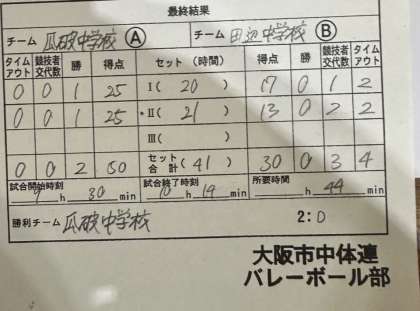 最終結果
チーム 瓜破中学校 Ⓐ チーム 田辺中学校 Ⓑ
タイムアウト 競技者交代数 勝 得点 セット（時間） 得点 勝 競技者交代数 タイムアウト
0 0 1 25 Ⅰ( 20 ) 17 0 1 2
0 0 1 25 *Ⅱ( 21 ) 13 0 2 2
Ⅲ( )
0 0 2 50 セット合計(41) 30 0 3 4
試合開始時刻 試合終了時刻 所要時間
9 h 30 min 10 h 14 min h 44 min
勝利チーム 瓜破中学校 2:0
大阪市中体連
バレーボール部